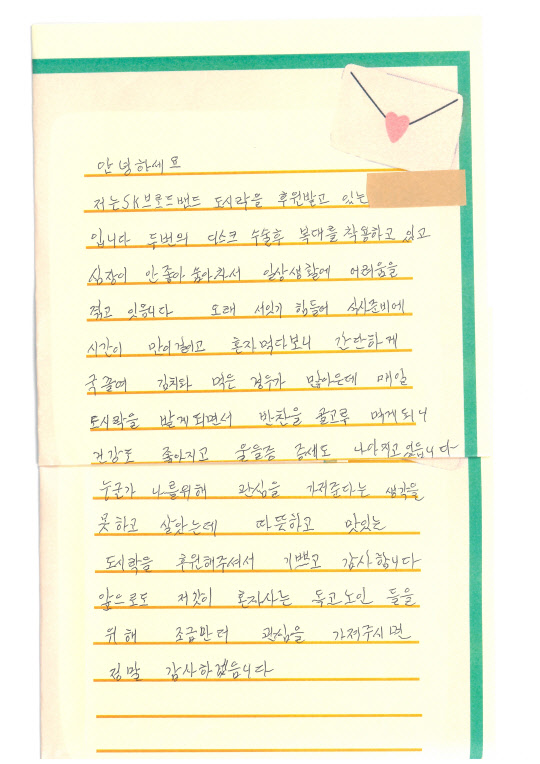 안녕하세요
저는SK브로드밴드 도시락을 후원받고 있는
입니다 두번의 디스크 수술후 복대를 착용하고 있고
심장이 안좋아 숨이차서 일상생활에 어려움을
겪고 있읍니다 오래 서있기 힘들어 식사준비에
시간이 많이걸리고 혼자먹다보니 간단하게
국끓여 김치와 먹은 경우가 많아은데 매일
도시락을 받게되면서 반찬을 골고루 먹게되니
건강도 좋아지고 우울증 증세도 나아지고있읍니다
누군가 나를위해 관심을 가져준다는 생각을
못하고 살았는데 따뜻하고 맛있는
도시락을 후원해주셔서 기쁘고 감사합니다
앞으로도 저같이 혼자사는 독고노인 들을
위해 조금만더 관심을 가져주시면
정말 감사하겠읍니다